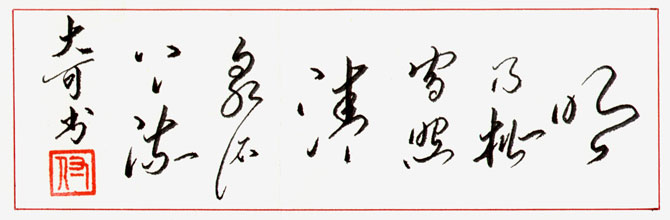 明
月松
间照
清
泉石
上流
大可书